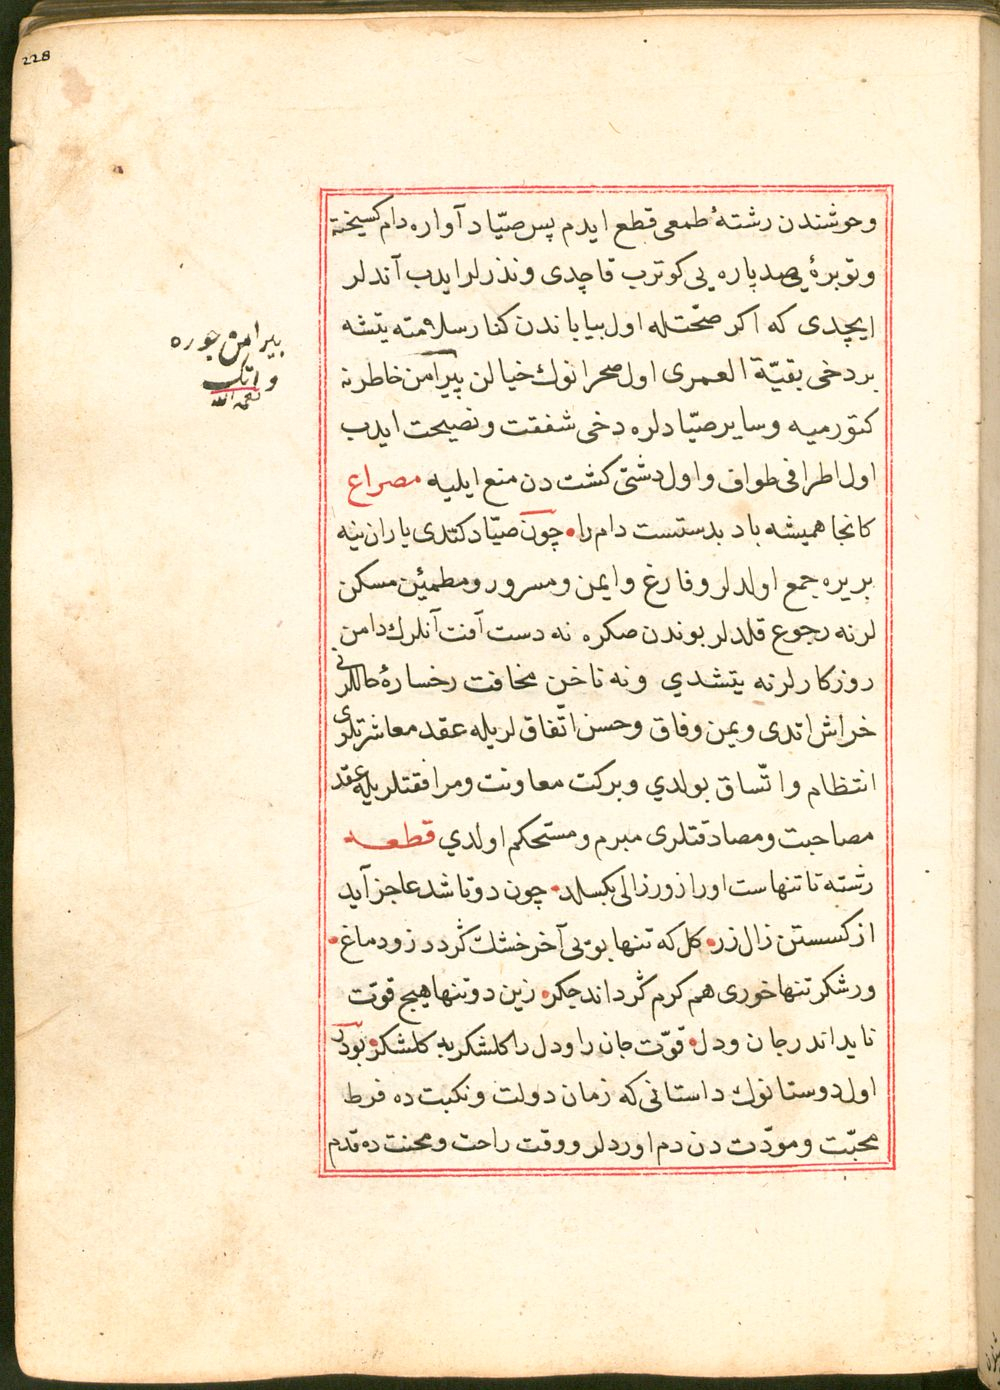 228
وحوشندن رشتهٔ طمعی قطع ایدم پس صیّاد آواره دام کسیخته
وتوبرهٔ صد پاره یی کوترب قاچدی ونذرلر ایدب آندلر
ایچدی که اکر صحّتله اول بیاباندن کنار سلامته یتشه
بردخی بقیّة العمری اول صحرانوك خیالن پیرامن خاطرنه
کتورمیه وسایر صیّادلره دخی شفقت ونصیحت ایدب
اول اطرافی طواف واول دشتی کشت دن منع ایلیه مصراع
کانجا همیشه باد بدستست دام را چون صیّاد کتدی یاران ینه
بریره جمع اولدلر وفارغ وایمن ومسرور ومطمئین مسکن
لرنه رجوع قلدلر بوندن صکره نه دست آفت آنلرك دامن
روزکارلرنه یتشدي ونه ناخن مخافت رخسارهٔ حاللرنی
خراش اتدی ویمن وفاق وحسن اتّفاق لریله عقد معاشرتلری
انتظام واتّساق بولدي وبرکت معاونت ومرافقتلریله عقد
مصاحبت ومصادقتلری مبرم ومستحکم اولدي قطعه
رشته تا تنهاست اورا زور زالی بکسلد چون دوتا شد عاجز آید
از کسستن زال زر کل که تنها بویی آخر خشك گردد زو دماغ
ور شکر تنها خوری هم کرم گرداند جکر زین دو تنها هیچ قوّت
ناید اندر جان ودل قوّت جان را ودل را کلشکر به کلشکر بودر
اول دوستانوك داستانی که زمان دولت ونکبت ده فرط
محبّت ومودّت دن دم اوردلر ووقت راحت ومحنت ده قدم
پیرامن جوره
واتك
نعمة الله